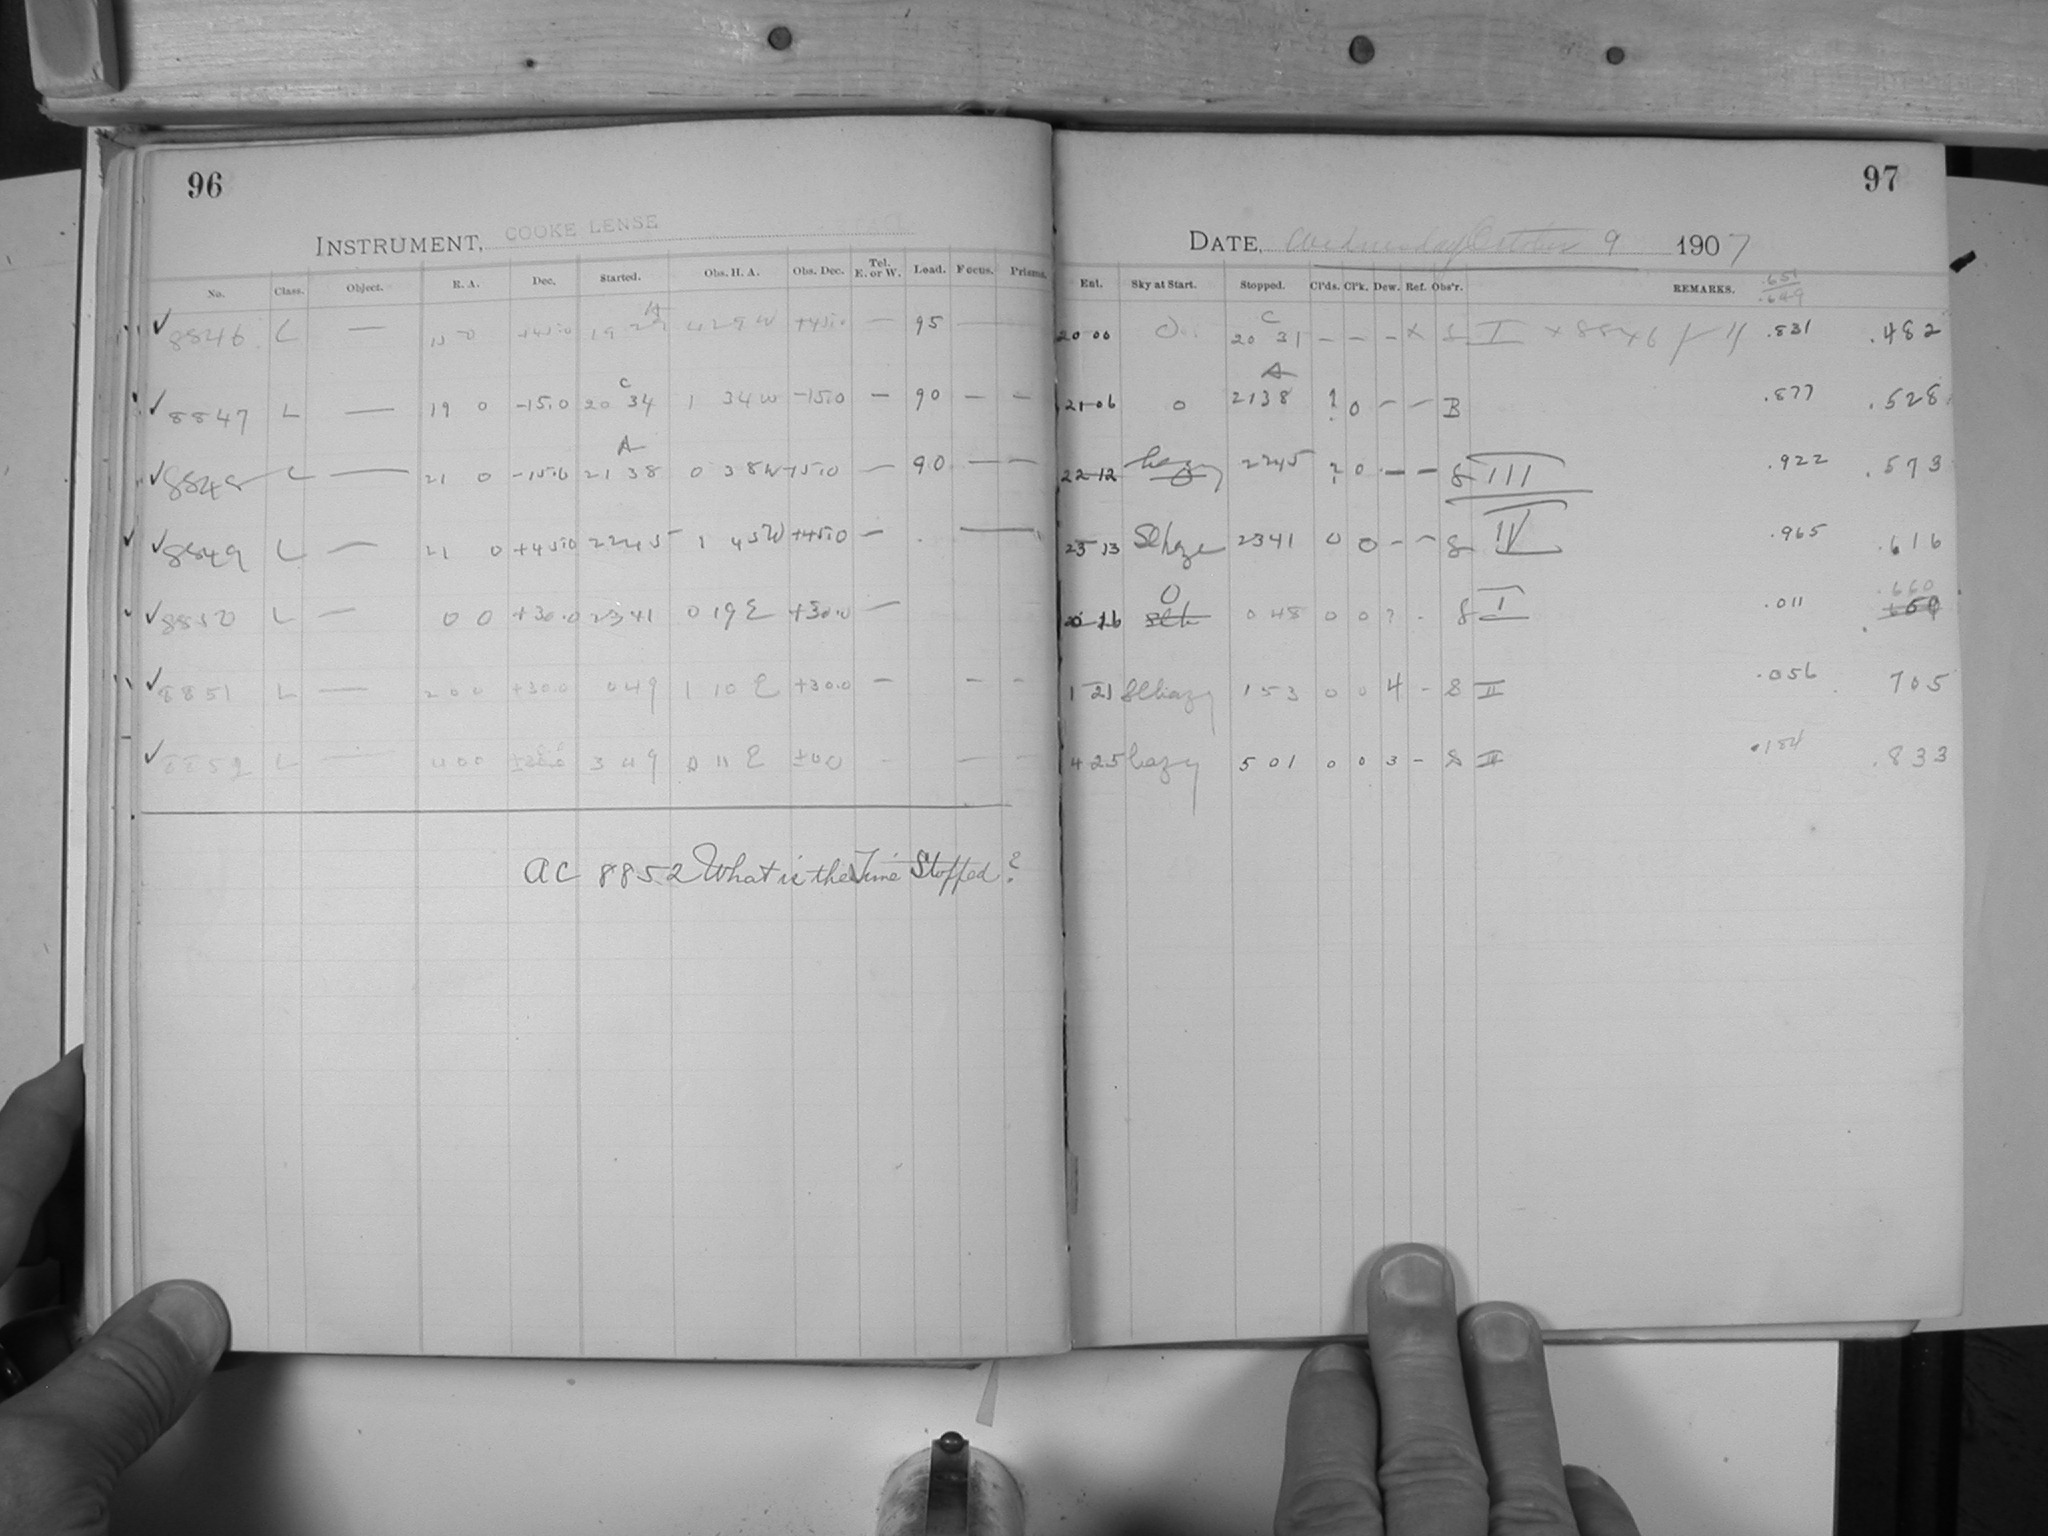 96
INSTRUMENT, COOKE LENSE
No. Class. Object. R. A. Dec. Started. Obs. H. A. Obs. Dec. Tel. E. or W. Load. Focus. Prisms.
✓ 8846 L — 15 0 +45.0 19 29 4 29 W +45.0 — 95 —
C
✓ 8847 L — 19 0 -15.0 20 34 1 34 W -15.0 — 90 — —
A
✓ 8848 L — 21 0 -15.0 21 38 0 38 W -15.0 — 90 — —
✓ 8849 L — 21 0 +45.0 22 45 1 45 W +45.0 — —
✓ 8850 L — 0 0 +30.0 23 41 0 19 E +30.0 —
✓ 8851 L — 2 00 +30.0 0 49 1 10 E +30.0 — — —
✓ 8852 L — 4 00 3 49 0 11 E ±00 - — —
AC 8852 What is the Time Stopped?
97
DATE, Wednesday October 9 1907
Ent. Sky at Start. Stopped. Cl'ds. Cl'k. Dew. Ref. Obs'r. REMARKS. .651
.649
C
20 00 0 20 31 — — — x S I x 8846 .831 .482
A
21 06 0 21 38 ? 0 — — B .877 .528
22 12 hazy 22 45 ? 0 — — S III .922 .573
23 13 Sl haze 23 41 0 0 - - S IV .965 .616
0 .660
0 16 0 48 0 0 ? - S I .011
1 21 Sl hazy 1 53 0 0 4 - S II .056 705
4 25 hazy 5 01 0 0 3 - S II .184 .833